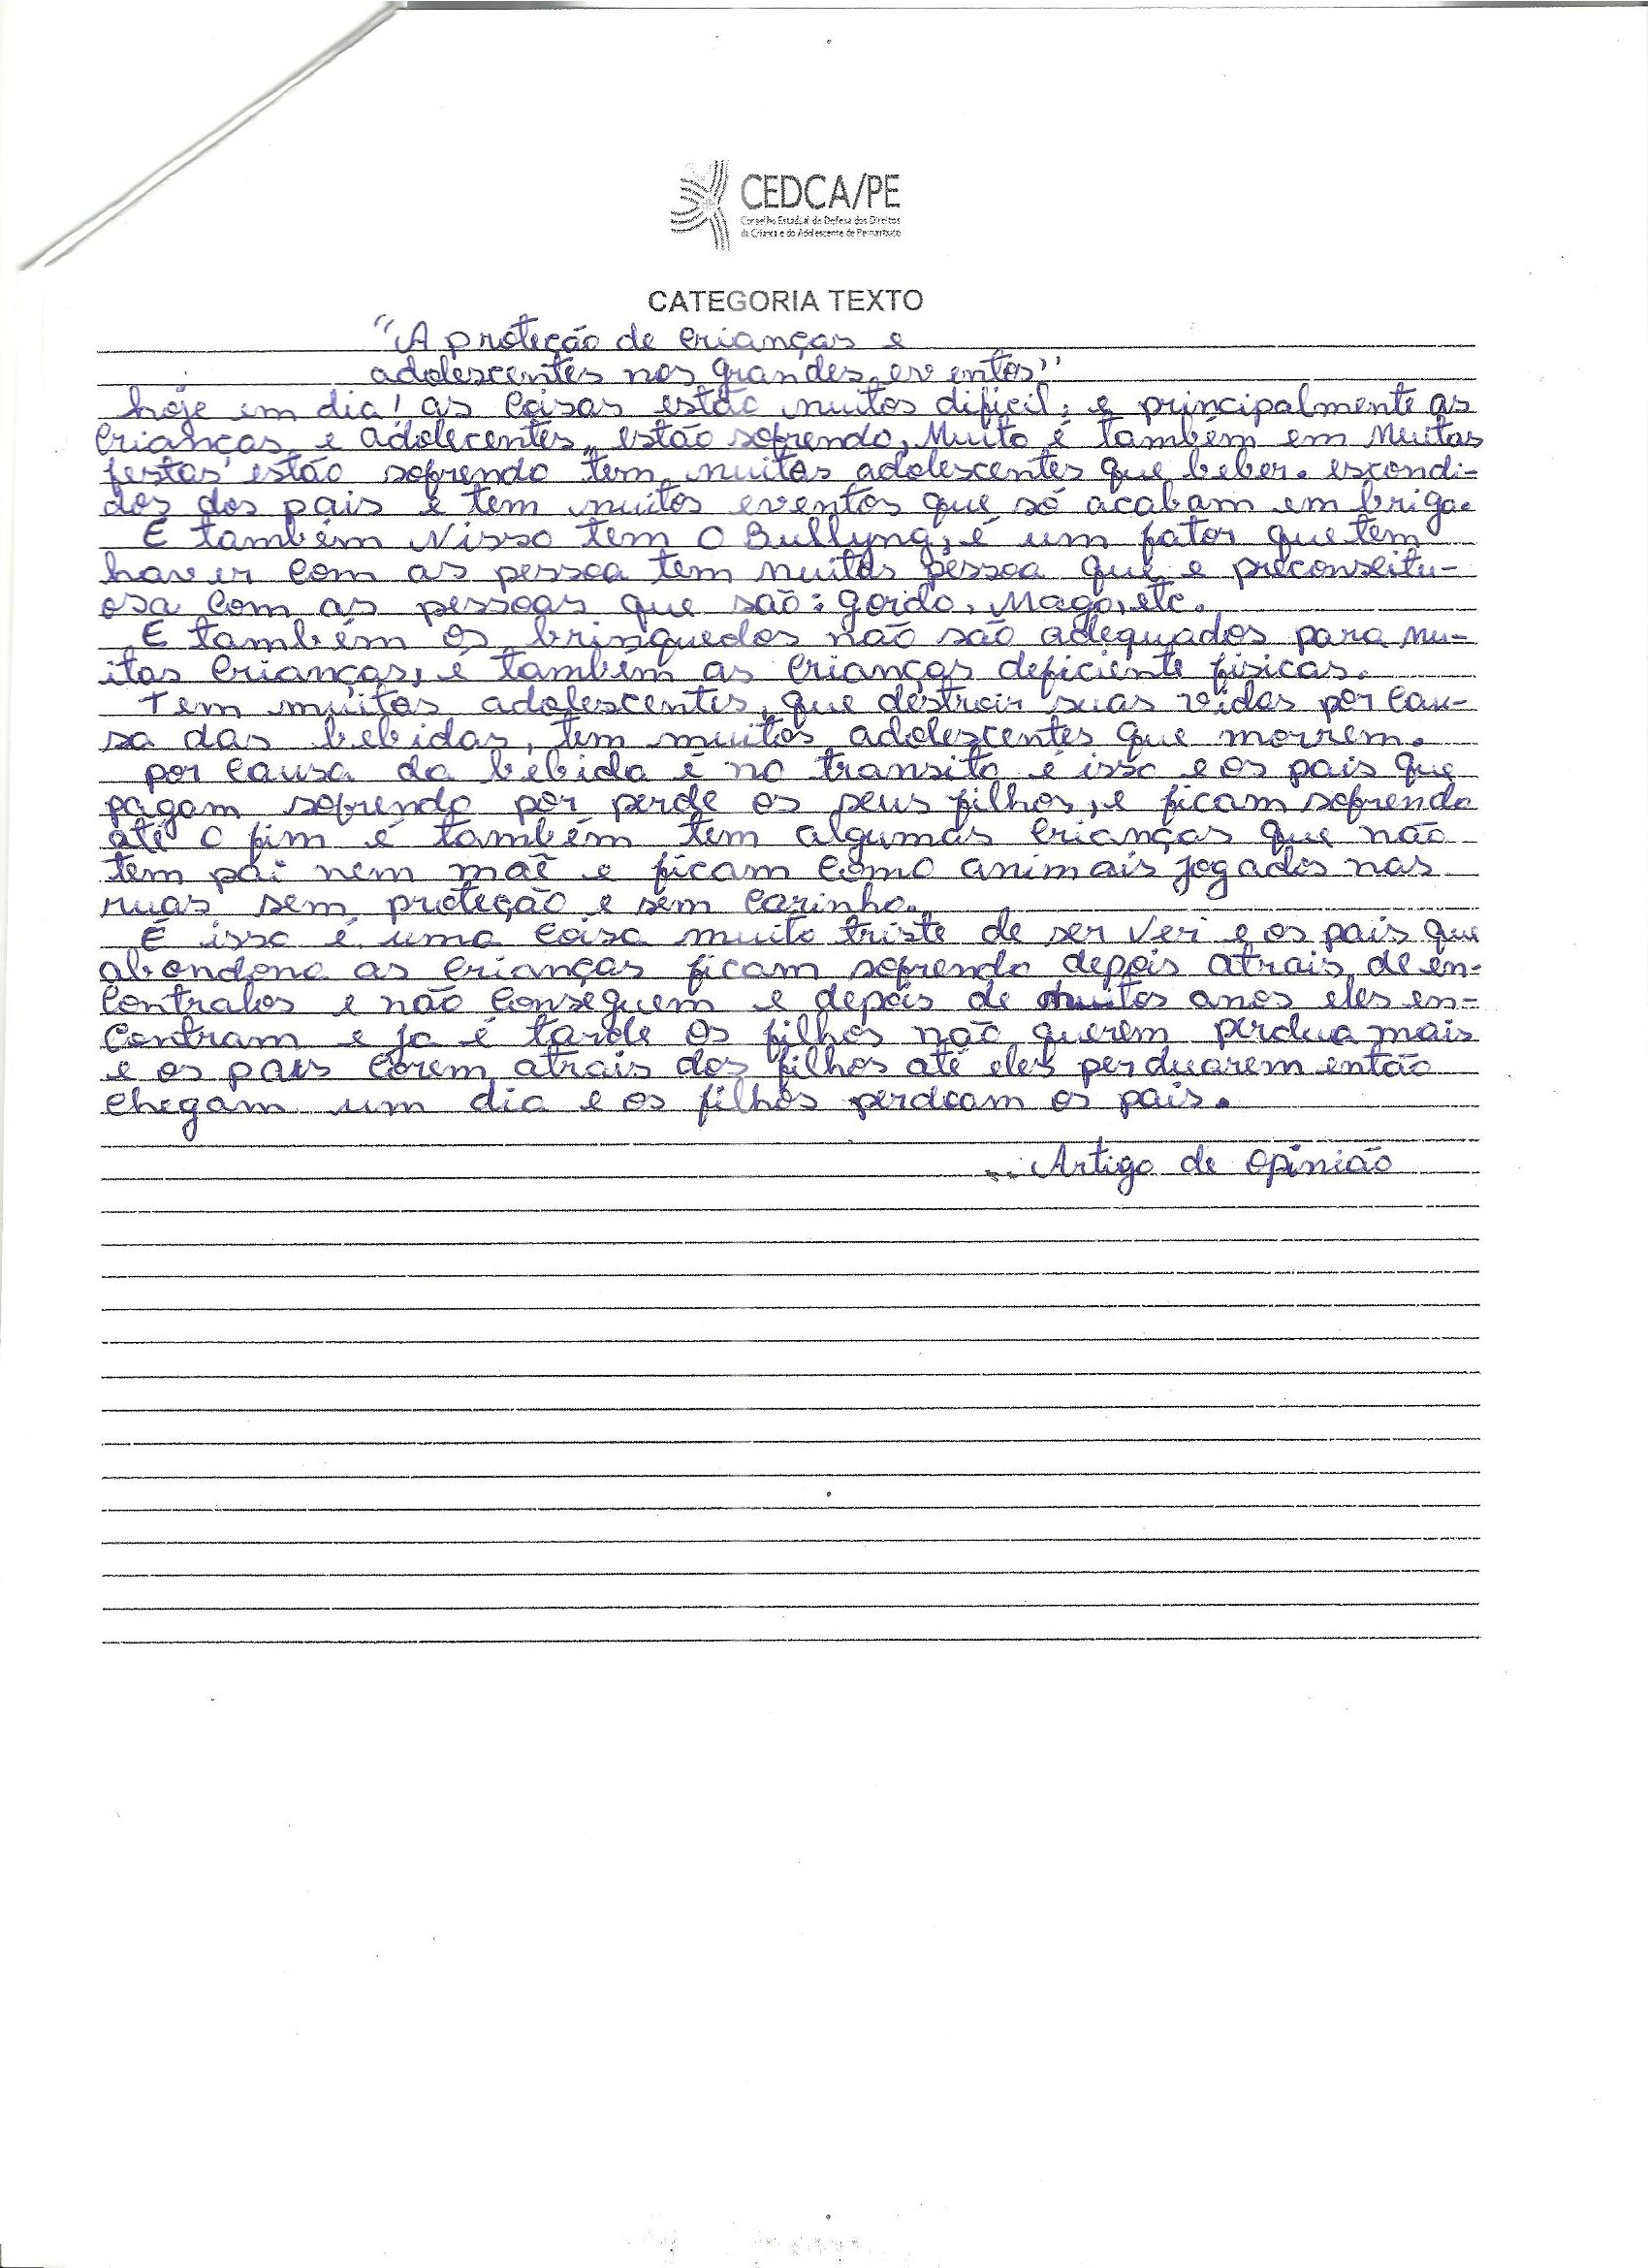 CEDCA/PE
Conselho Estadual de Defesa dos Direitos
da Criança e do Adolescente de Pernambuco
CATEGORIA TEXTO
"A proteção de crianças e
adolescentes nos grandes eventos"
hoje em dia! as coisas estão muitos dificil; e principalmente as
crianças e adolecentes, estão sofrendo, Muito é também em Muitas
festas estão sofrendo tem muitos adolescentes que beber. escondi-
dos dos pais e tem muitos eventos que só acabam em briga.
E também Nisso tem o Bullyng, é um fator que tem
haver com as pessoa tem muitas pessoa que e preconseitu-
osa com as pessoas que são: gordo, Mago, etc.
E também os brinquedos não são adequados para mu-
itas crianças, é também as crianças deficiente fisicas.
Tem muitos adolescentes, que destroir suas vidas por cau-
sa das bebidas, tem muitos adolescentes que morrem.
por causa da bebida é no transito é isso e os pais que
pagam sofrendo por perde os seus filhos, e ficam sofrendo
até o fim é também tem algumas crianças que não
tem pai nem mãe e ficam como animais jogados nas
ruas sem proteção e sem carinho.
É isso é uma coisa muito triste de ser ver e os pais que
abondona as crianças ficam sofrendo depois atrais de en-
contralos e não conseguem e depois de muitos anos eles en-
contram e ja é tarde os filhos não querem perdua mais
e os pais corem atrais dos filhos até eles perduarem então
chegam um dia e os filhos perdoam os pais.
Artigo de opinião